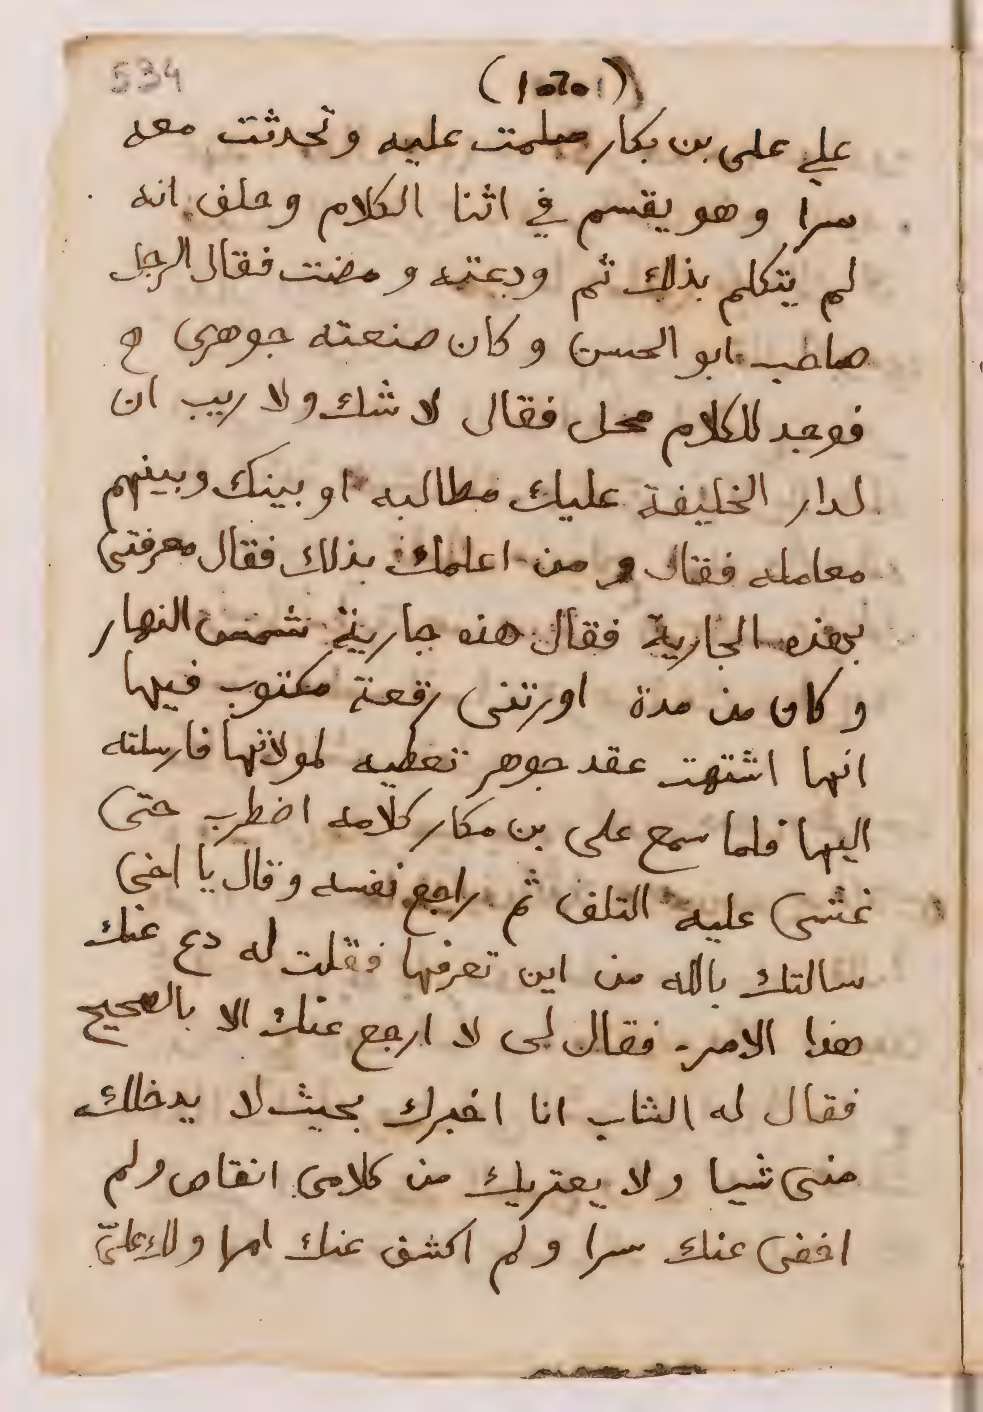 534
على على بن بكار سلمت عليه وتحدثت معه
سرا وهو يقسم في اثنا الكلام وحلف انه
لم يتكلم بذلك ثم ودعته ومضت فقال الرجل
صاحب ابو الحسن وكان صنعته جوهرى
فوجد للكلام محل فقال لا شك ولا ريب ان
لدار الخليفة عليك مطالبه او بينك وبينهم
معامله فقال و من اعلمك بذلك فقال معرفتى
بهذه الجارية فقال هذه جارية شمس النهار
وكان من مدة اورتنى رقعة مكتوب فيها
انها اشتهت عقد جوهر تعطيه لمولاتها فارسلته
اليها فلما سمع على بن مكار كلامه اضطرب حتى
غشى عليه التلف ثم راجع نفسه وقال يا اخى
سالتك بالله من اين تعرفها فقلت له دع عنك
هذا الامر فقال لى لا ارجع عنك الا بالصحيح
فقال له الشاب انا اخبرك بحيث لا يدخلك
منى شيا ولا يعتريك من كلامى انقاص ولم
اخفى عنك سرا ولم اكشف عنك امرا ولك علىّ